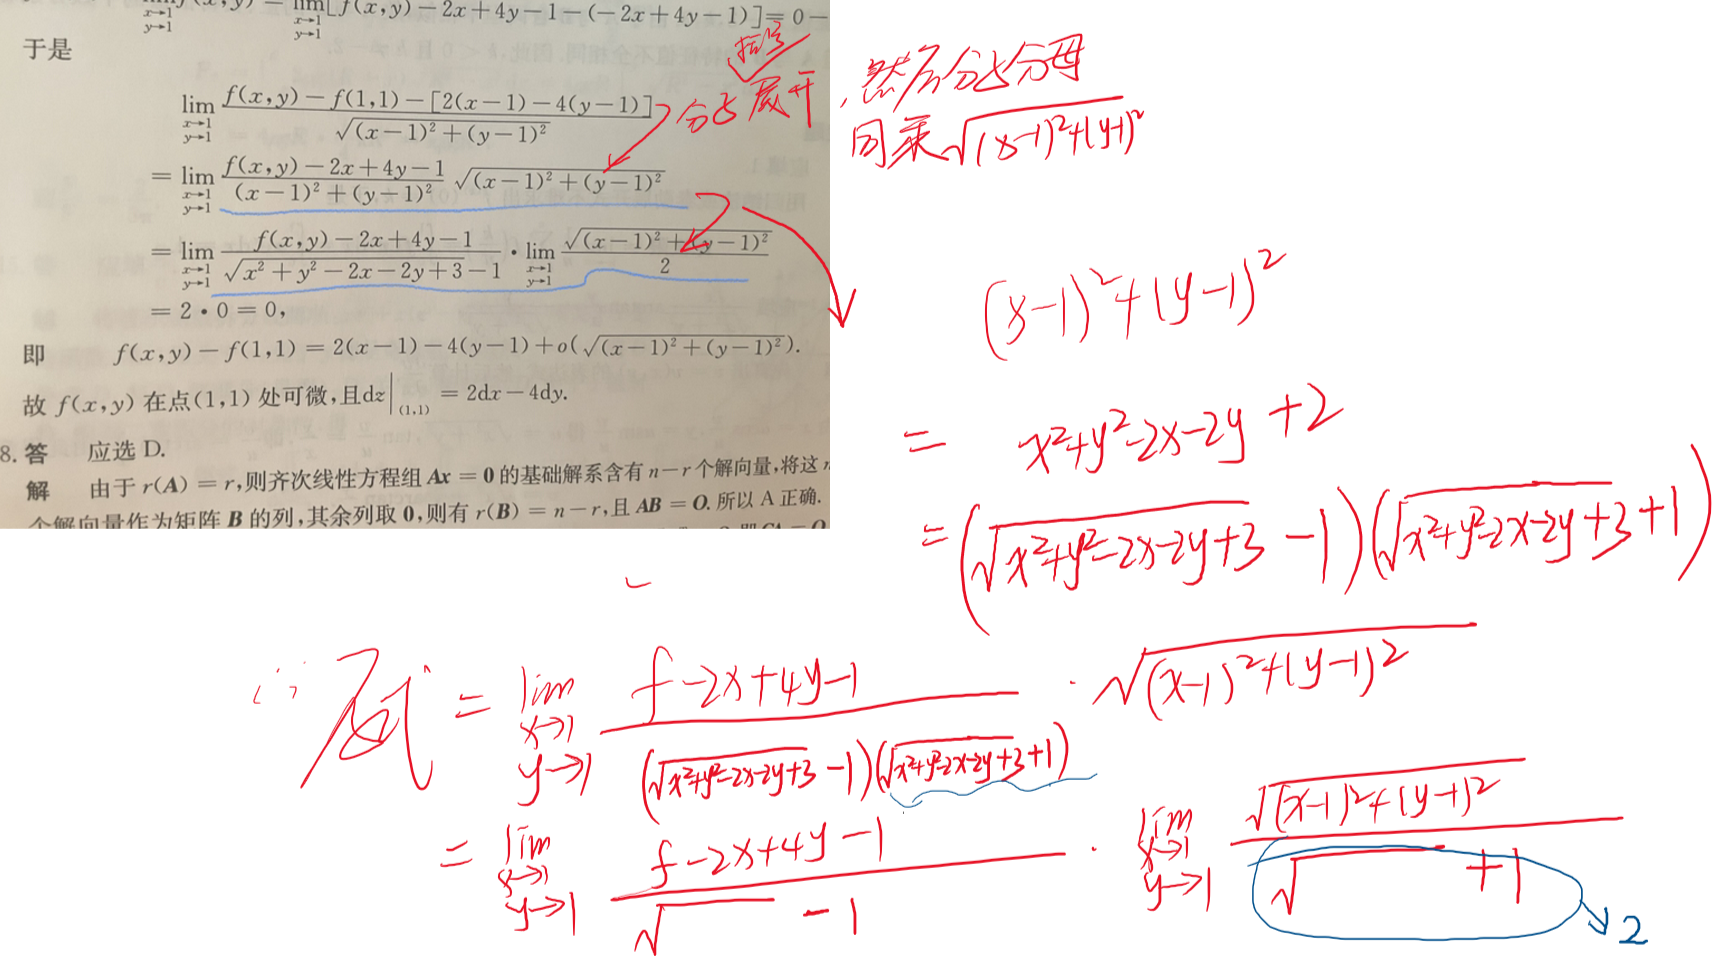 lim f(x,y) = lim [f(x,y)-2x+4y-1-(-2x+4y-1)]=0-
x→1 x→1
y→1 y→1
于是
lim \frac{f(x,y)-f(1,1)-[2(x-1)-4(y-1)]}{\sqrt{(x-1)²+(y-1)²}}
x→1
y→1
= lim \frac{f(x,y)-2x+4y-1}{(x-1)²+(y-1)²} \sqrt{(x-1)²+(y-1)²}
x→1
y→1
= lim \frac{f(x,y)-2x+4y-1}{\sqrt{x²+y²-2x-2y+3}-1} · lim \frac{\sqrt{(x-1)²+(y-1)²}}{2}
x→1 x→1
y→1 y→1
=2·0=0,
即 f(x,y)-f(1,1)=2(x-1)-4(y-1)+o(\sqrt{(x-1)²+(y-1)²}).
故 f(x,y) 在点(1,1) 处可微,且dz|(1,1) =2dx-4dy.
8. 答 应选 D.
解 由于 r(A)=r,则齐次线性方程组 Ax=0 的基础解系含有 n-r 个解向量,将这
个解向量作为矩阵 B 的列,其余列取 0,则有 r(B)=n-r,且 AB=O. 所以 A 正确.
括号
分子展开,然后分子分母
同乘\sqrt{(x-1)²+(y-1)²}
(x-1)²+(y-1)²
= x²+y²-2x-2y+2
= (\sqrt{x²+y²-2x-2y+3}-1)(\sqrt{x²+y²-2x-2y+3}+1)
∴ 原式 = lim \frac{f-2x+4y-1}{(\sqrt{x²+y²-2x-2y+3}-1)(\sqrt{x²+y²-2x-2y+3}+1)} · \sqrt{(x-1)²+(y-1)²}
x→1
y→1
= lim \frac{f-2x+4y-1}{\sqrt{ }-1} · lim \frac{\sqrt{(x-1)²+(y-1)²}}{\sqrt{ }+1}
x→1 x→1
y→1 y→1
2